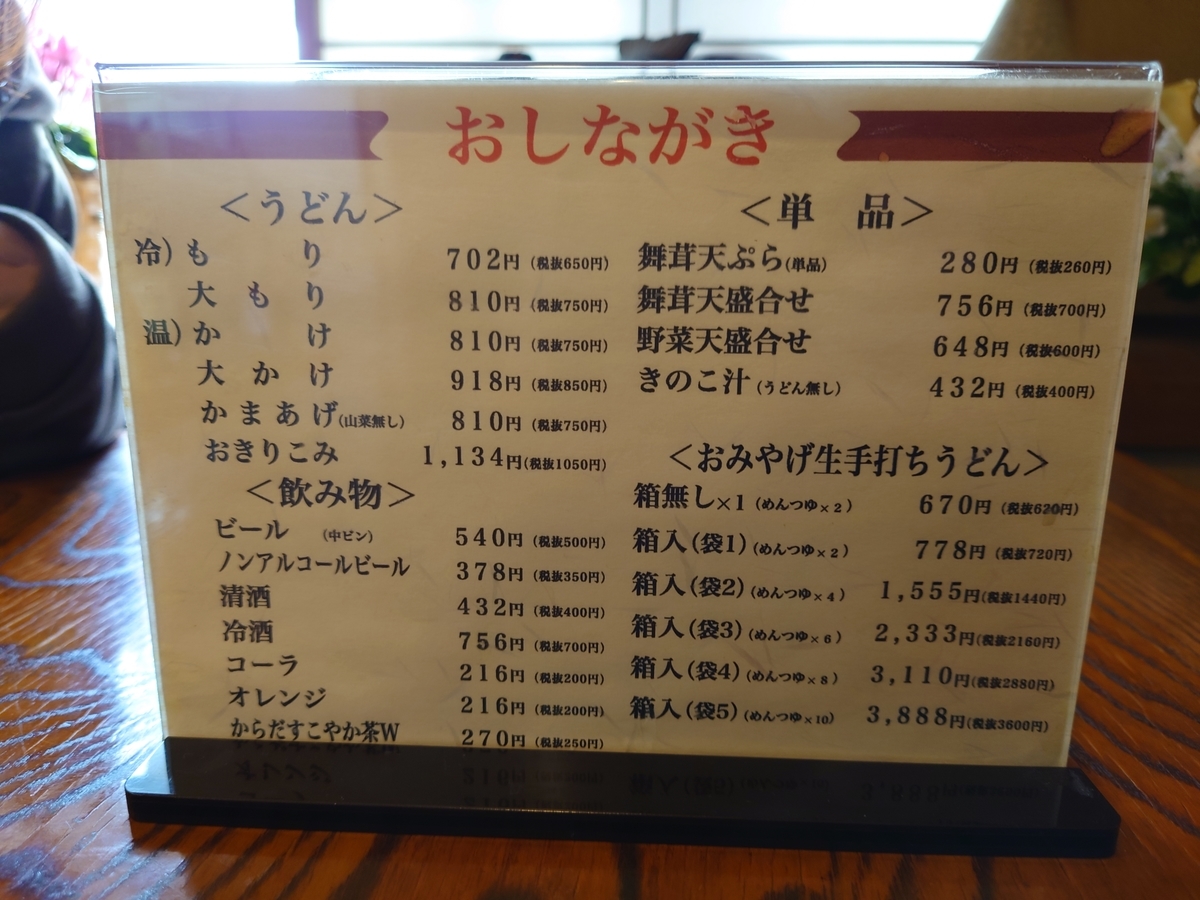 おしながき
＜うどん＞
冷)もり 702円(税抜650円)
大もり 810円(税抜750円)
温)かけ 810円(税抜750円)
大かけ 918円(税抜850円)
かまあげ(山菜無し) 810円(税抜750円)
おきりこみ 1,134円(税抜1050円)
＜飲み物＞
ビール (中ビン) 540円(税抜500円)
ノンアルコールビール 378円(税抜350円)
清酒 432円(税抜400円)
冷酒 756円(税抜700円)
コーラ 216円(税抜200円)
オレンジ 216円(税抜200円)
からだすこやか茶W 270円(税抜250円)
＜単品＞
舞茸天ぷら(単品) 280円(税抜260円)
舞茸天盛合せ 756円(税抜700円)
野菜天盛合せ 648円(税抜600円)
きのこ汁(うどん無し) 432円(税抜400円)
＜おみやげ生手打ちうどん＞
箱無し×1(めんつゆ×2) 670円(税抜620円)
箱入(袋1)(めんつゆ×2) 778円(税抜720円)
箱入(袋2)(めんつゆ×4) 1,555円(税抜1440円)
箱入(袋3)(めんつゆ×6) 2,333円(税抜2160円)
箱入(袋4)(めんつゆ×8) 3,110円(税抜2880円)
箱入(袋5)(めんつゆ×10) 3,888円(税抜3600円)